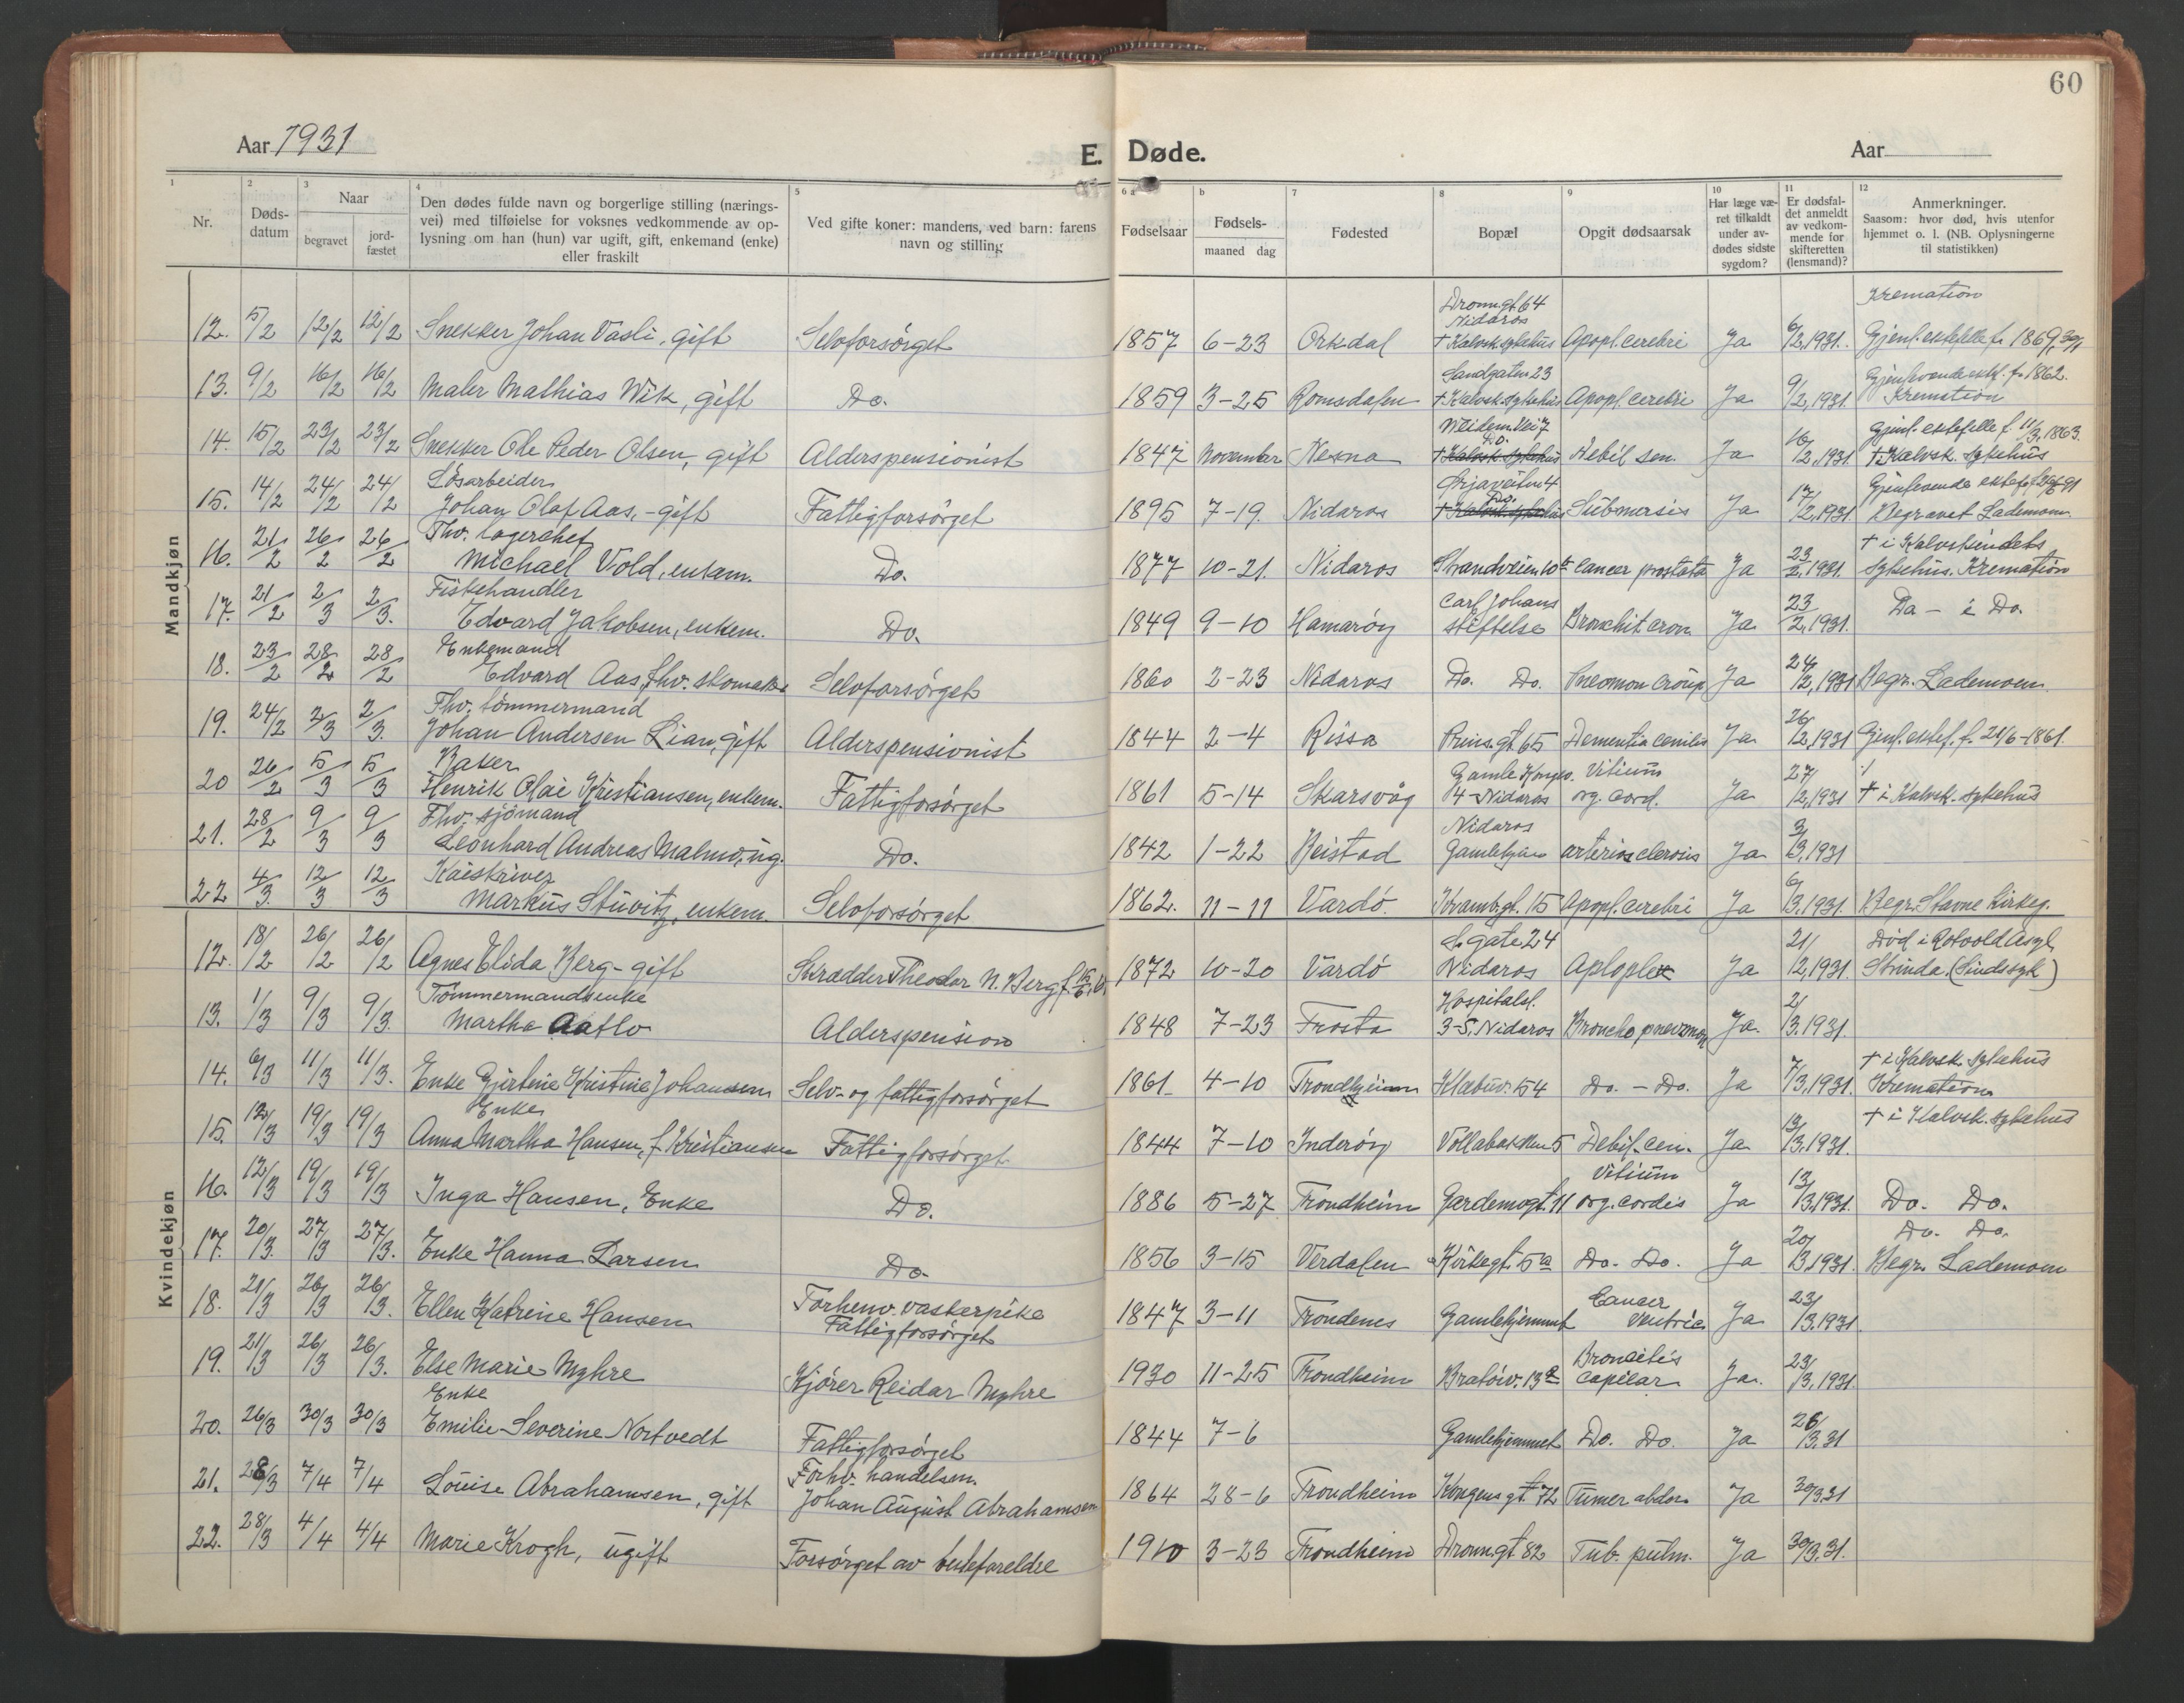 60
Aar 1931
E. Døde.
Aar
1 2 3 4 5 6 a b 7 8 9 10 11 12
Nr.
Døds-
datum
Naar
begravet
jord-
fæstet
Den dødes fulde navn og borgerlige stilling (nærings-
vei) med tilføielse for voksnes vedkommende av op-
lysning om han (hun) var ugift, gift, enkemand (enke)
eller fraskilt
Ved gifte koner: mandens, ved barn: farens
navn og stilling
Fødselsaar
Fødsels-
maaned dag
Fødested
Bopæl
Opgit dødsaarsak
Har læge væ-
ret tilkaldt
under av-
dødes sidste
sygdom?
Er dødsfal-
det anmeldt
av vedkom-
mende for
skifteretten
(lensmand)?
Anmerkninger.
Saasom: hvor død, hvis utenfor
hjemmet o. l. (NB. Oplysningerne
til statistikken)
Mandkjøn
Dronn.gt. 64 Kremation
Nidaros
12. 5/2 12/2 12/2 Snekker Johan Vasli, gift Selvforsørget 1857 6-23 Orkdal † Kalvsk. sykehus Apopl. cerebri Ja 6/2, 1931. Gjenl. ektefelle f. 1869, 30/1
Sandgaten 23 Gjenlevende ektef. f. 1862.
13. 9/2 16/2 16/2 Maler Mathias Wik, gift Do. 1859 3-25 Romsdalen † Kalvsk. sykehus Apopl. cerebri Ja 9/2, 1931. Kremation
Weidem.vei 7 Gjenl. ektefelle f. 11/3, 1863.
Do.
14. 15/2 23/2 23/2 Snekker Ole Peder Olsen, gift Alderspensionist 1847 November Nesna † Kalvsk. sykehus Debil sen. Ja 16/2, 1931. † i Kalvsk. sykehus
Løsarbeider Ørjaveiten 4
Do.
15. 14/2 24/2 24/2 Johan Olaf Aas, - gift Fattigforsørget 1895 7-19. Nidaros † Kalvsk. sykehus Submersis Ja 17/2, 1931. Begravet Lademoen.
Fhv. lagerchef † i Kalvskindets
16. 21/2 26/2 26/2 Michael Vold, enkem. Do. 1877 10-21. Nidaros Strandveien 10 Cancer prostata Ja 23/2, 1931. sykehus. Kremation
Fiskehandler Carl Johans
17. 21/2 2/3 2/3. Edvard Jakobsen, enkem. Do. 1849 9-10 Hamarøy stiftelse Bronchit. cron. Ja 23/2, 1931. Da - i Do.
Enkemand
18. 23/2 28/2 28/2 Edvard Aas, fhv. skomaker Selvforsørget 1860 2-23 Nidaros Do. Do. Pneomon Croup Ja 24/2, 1931 Begr. Lademoen.
Fhv. tømmermand
19. 24/2 2/3 2/3. Johan Andersen Lian, gift Alderspensionist 1844 2-4 Rissa Prins.gt. 65 Dementia cenilis Ja 26/2, 1931 Gjenl. ektef. f. 21/6-1861.
Baker Gamle Kongev. Vitium
20 26/2 5/3 5/3 Henrik Olai Kristiansen, enkem. Fattigforsørget 1861 5-14 Skarsvåg 4 - Nidaros org. cord. Ja 27/2, 1931 † i Kalvsk. sykehus
Fhv. sjømand Nidaros
21. 28/2 9/3 9/3 Leonhard Andreas Malmo, ug. Do. 1842 1-22 Beistad Gamlehjem arteriosclerosis Ja 3/3, 1931
Kaiskriver
22 4/3. 12/3 12/3 Markus Stuvitz, enkem. Selvforsørget 1862. 11-11 Vardø. Kvamb.gt. 15 Apopl. cerebri Ja 6/3, 1931. Begr. Stavne Kirkeg.
Kvindekjøn
gate 24 Død i Rotvold Asyl,
12. 18/2 26/2 26/2 Agnes Elida Berg - gift Skrædder Theodor N. Berg 1872 10-20 Vardø Nidaros Aploplex Ja 21/2, 1931. Strinda. (Sindssyk)
Tømmermandsenke Hospitalsl.
13. 1/3 9/3 9/3. Martha Aatlo Alderspension 1848 7-23 Frosta 3-5, Nidaros Broncho pnevmon Ja. 2/3. 1931.
† i Kalvsk. sykehus
14. 6/3 11/3 11/3. Enke Gjertine Kristine Johansen Selv- og fattigforsørget 1861 4-10 Trondhjem Klæbuv. 54 Do. - Do. Ja 7/3, 1931. Kremation
Enke † i Kalvsk. sykehus
15. 12/3 19/3 19/3 Anna Martha Hansen, f. Kristiansen Fattigforsørget 1844 7-10 Inderøy Vollabakken 5 Debil. cen. Ja 13/3, 1931.
Vitium
16. 12/3 19/3 19/3 Inga Hansen, Enke Do. 1886 5-27 Trondheim Gardemogt. 11 org. cordis Ja 13/3, 1931. Do. Do.
Do. Do.
17. 20/3. 27/3 27/3. Enke Hanna Larsen Do. 1856 3-15 Verdalen Kirkegt. 5 a Do. Do. Ja 20/3, 1931. Begr. Lademoen
Forhenv. vaskerpike Cancer
18. 21/3 26/3 26/3. Ellen Katrine Hansen Fattigforsørget 1847 3-11 Trondenes Gamlehjemmet Ventric Ja 23/3. 1931.
Broncitis
19. 21/3 26/3 26/3. Else Marie Myhre Kjører Reidar Myhre 1930 11-25 Trondheim Bratøiv. 13 a Capilar Ja. 23/3, 1931.
Enke
20. 26/3 30/3 30/3 Emilie Severine Nortvedt Fattigforsørget 1844 7-6 Gamlehjemmet Do. Do. Ja 26/3. 31
Forhv. handelsm.
21. 28/3 7/4 7/4 Louise Abrahamsen, gift Johan August Abrahamsen 1864 28-6 Trondheim Kongens gt. 72 Tumer abdom Ja 30/3.31
22. 28/3 4/4 4/4 Marie Krogh, ugift Forsørget av besteforeldre 1910 3-23 Trondheim Dronn.gt. 82 Tub. pulm. Ja 30/3.31.